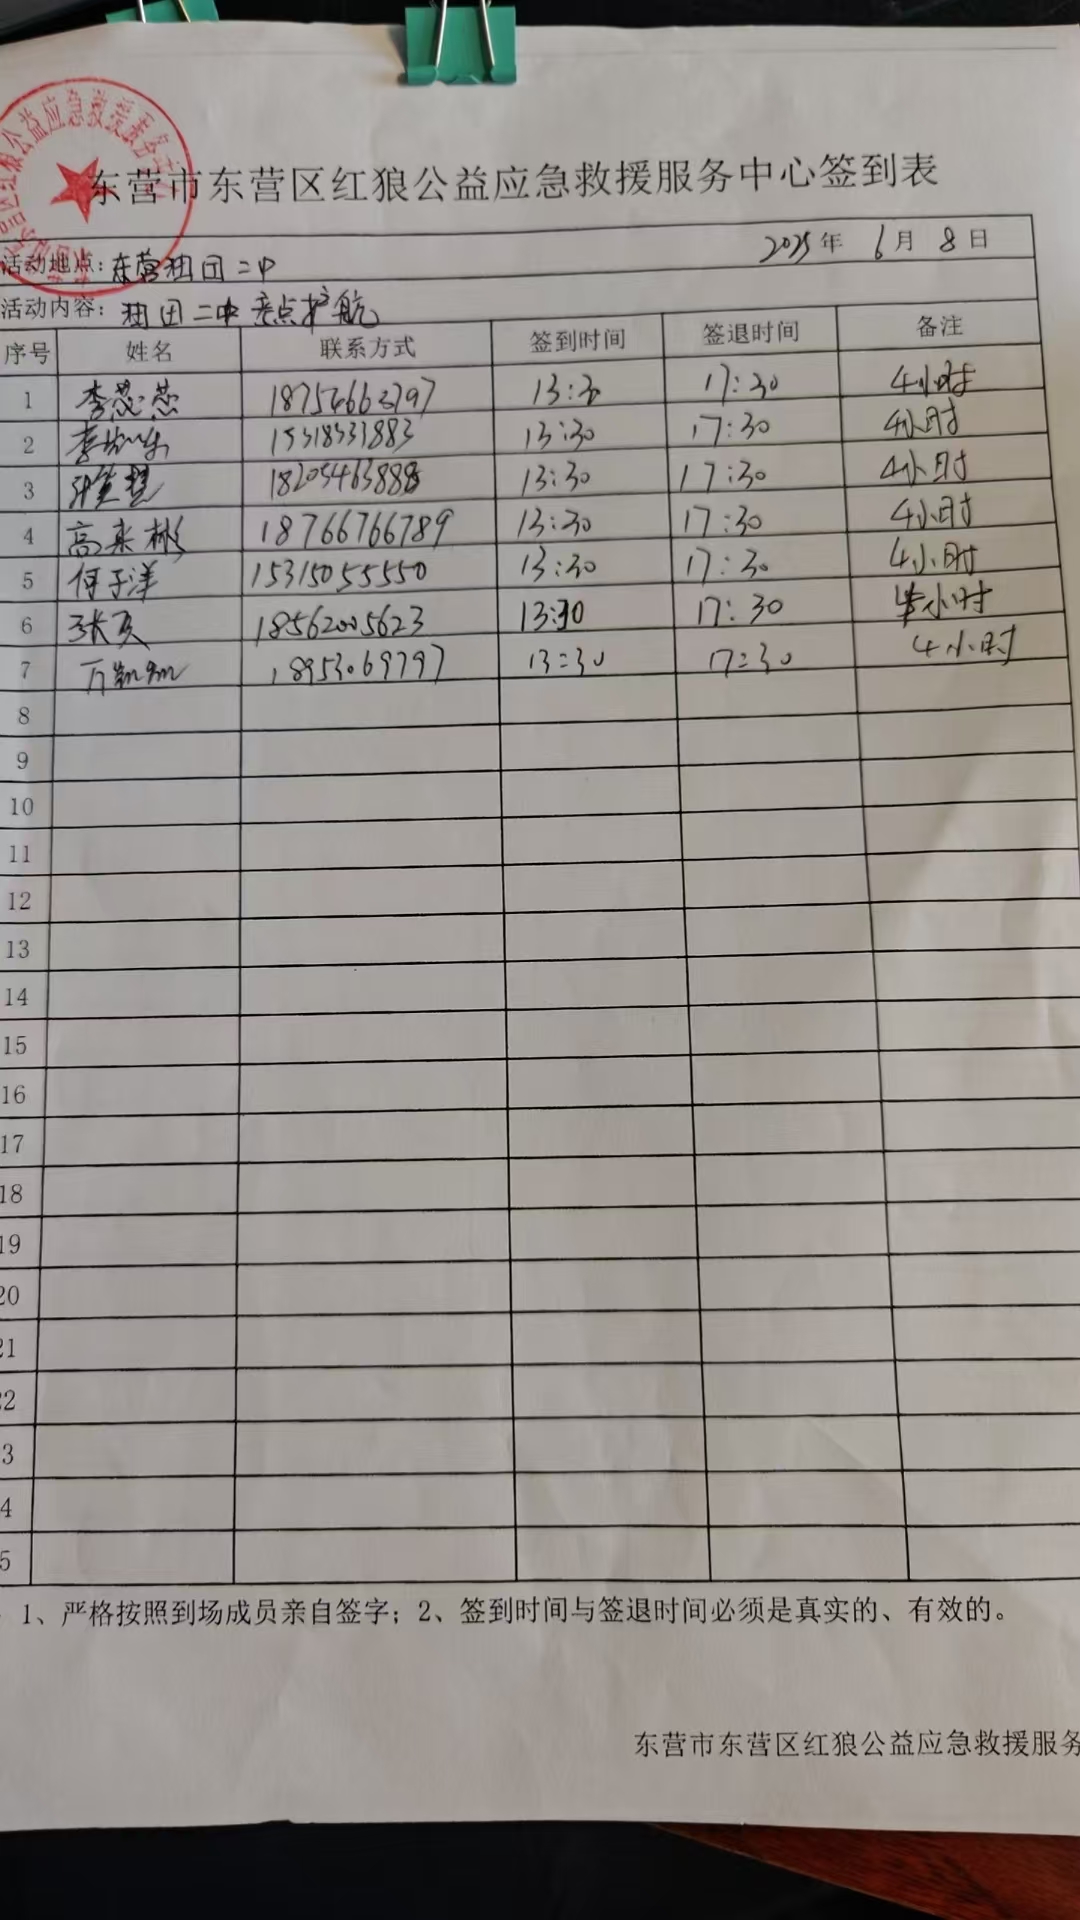 东营市东营区红狼公益应急救援服务中心签到表
2025年 6月 8日
活动地点: 东营 二中
活动内容: 二中 考点护航
序号 姓名 联系方式 签到时间 签退时间 备注
1 李蕊蕊 13:30 17:30 4小时
2 15318331883 13:30 17:30 4小时
3 18205463888 13:30 17:30 4小时
4 高来彬 18766766789 13:30 17:30 4小时
5 何子洋 15315055550 13:30 17:30 4小时
6 18562005623 13:30 17:30 4小时
7 18953069797 13:30 17:30 4小时
8
9
10
11
12
13
14
15
16
17
18
19
20
21
22
3
4
5
1、严格按照到场成员亲自签字；2、签到时间与签退时间必须是真实的、有效的。
东营市东营区红狼公益应急救援服务